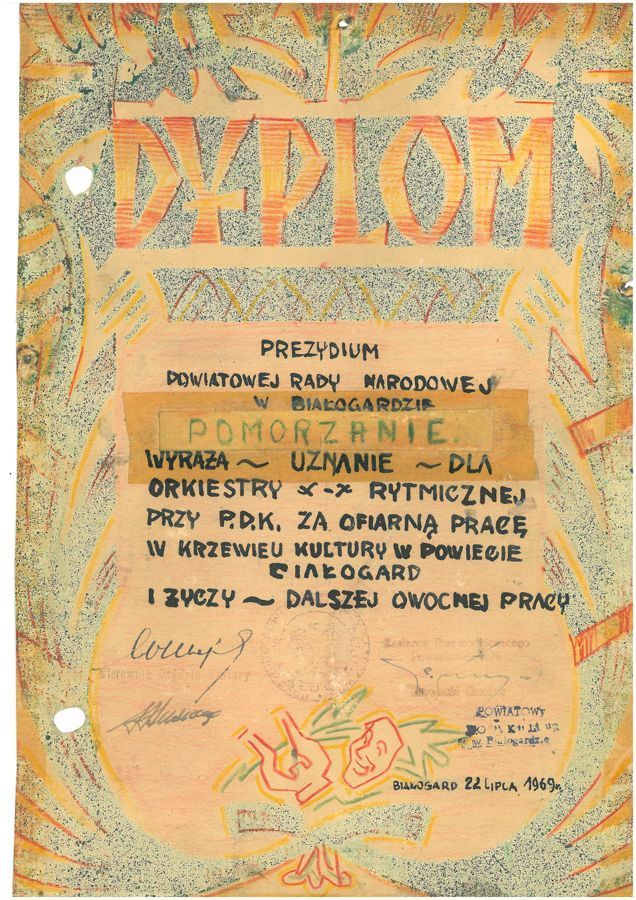 DYPLOM
PREZYDIUM
POWIATOWEJ RADY NARODOWEJ
W BIAŁOGARDZIE
POMORZANIE.
WYRAŻA ~ UZNANIE ~ DLA
ORKIESTRY X-X RYTMICZNEJ
PRZY P.D.K. ZA OFIARNĄ PRACĘ
W KRZEWIEU KULTURY W POWIECIE
BIAŁOGARD
I ŻYCZY ~ DALSZEJ OWOCNEJ PRACY
Kierownik Oddziału Kultury
POWIATOWY
DOM KULTURY
w Białogardzie
BIAŁOGARD 22 LIPCA 1969r.